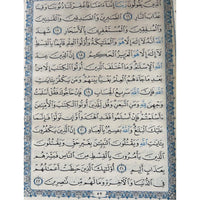 الَّذِينَ يَقُولُونَ رَبَّنَا إِنَّنَا آمَنَّا فَاغْفِرْ لَنَا ذُنُوبَنَا وَقِنَا
عَذَابَ النَّارِ ١٦ الصَّابِرِينَ وَالصَّادِقِينَ وَالْقَانِتِينَ
وَالْمُنفِقِينَ وَالْمُسْتَغْفِرِينَ بِالْأَسْحَارِ ١٧ شَهِدَ اللَّهُ أَنَّهُ
لَا إِلَٰهَ إِلَّا هُوَ وَالْمَلَائِكَةُ وَأُولُو الْعِلْمِ قَائِمًا بِالْقِسْطِ
لَا إِلَٰهَ إِلَّا هُوَ الْعَزِيزُ الْحَكِيمُ ١٨ إِنَّ الدِّينَ عِندَ
اللَّهِ الْإِسْلَامُ وَمَا اخْتَلَفَ الَّذِينَ أُوتُوا الْكِتَابَ إِلَّا مِن
بَعْدِ مَا جَاءَهُمُ الْعِلْمُ بَغْيًا بَيْنَهُمْ وَمَن يَكْفُرْ بِآيَاتِ
اللَّهِ فَإِنَّ اللَّهَ سَرِيعُ الْحِسَابِ ١٩ فَإِنْ حَاجُّوكَ فَقُلْ أَسْلَمْتُ
وَجْهِيَ لِلَّهِ وَمَنِ اتَّبَعَنِ وَقُل لِّلَّذِينَ أُوتُوا الْكِتَابَ وَالْأُمِّيِّينَ
أَأَسْلَمْتُمْ فَإِنْ أَسْلَمُوا فَقَدِ اهْتَدَوا وَّإِن تَوَلَّوْا فَإِنَّمَا
عَلَيْكَ الْبَلَاغُ وَاللَّهُ بَصِيرٌ بِالْعِبَادِ ٢٠ إِنَّ الَّذِينَ يَكْفُرُونَ
بِآيَاتِ اللَّهِ وَيَقْتُلُونَ النَّبِيِّينَ بِغَيْرِ حَقٍّ وَيَقْتُلُونَ
الَّذِينَ يَأْمُرُونَ بِالْقِسْطِ مِنَ النَّاسِ فَبَشِّرْهُم
بِعَذَابٍ أَلِيمٍ ٢١ أُولَٰئِكَ الَّذِينَ حَبِطَتْ أَعْمَالُهُمْ
فِي الدُّنْيَا وَالْآخِرَةِ وَمَا لَهُم مِّن نَّاصِرِينَ ٢٢
٥٢